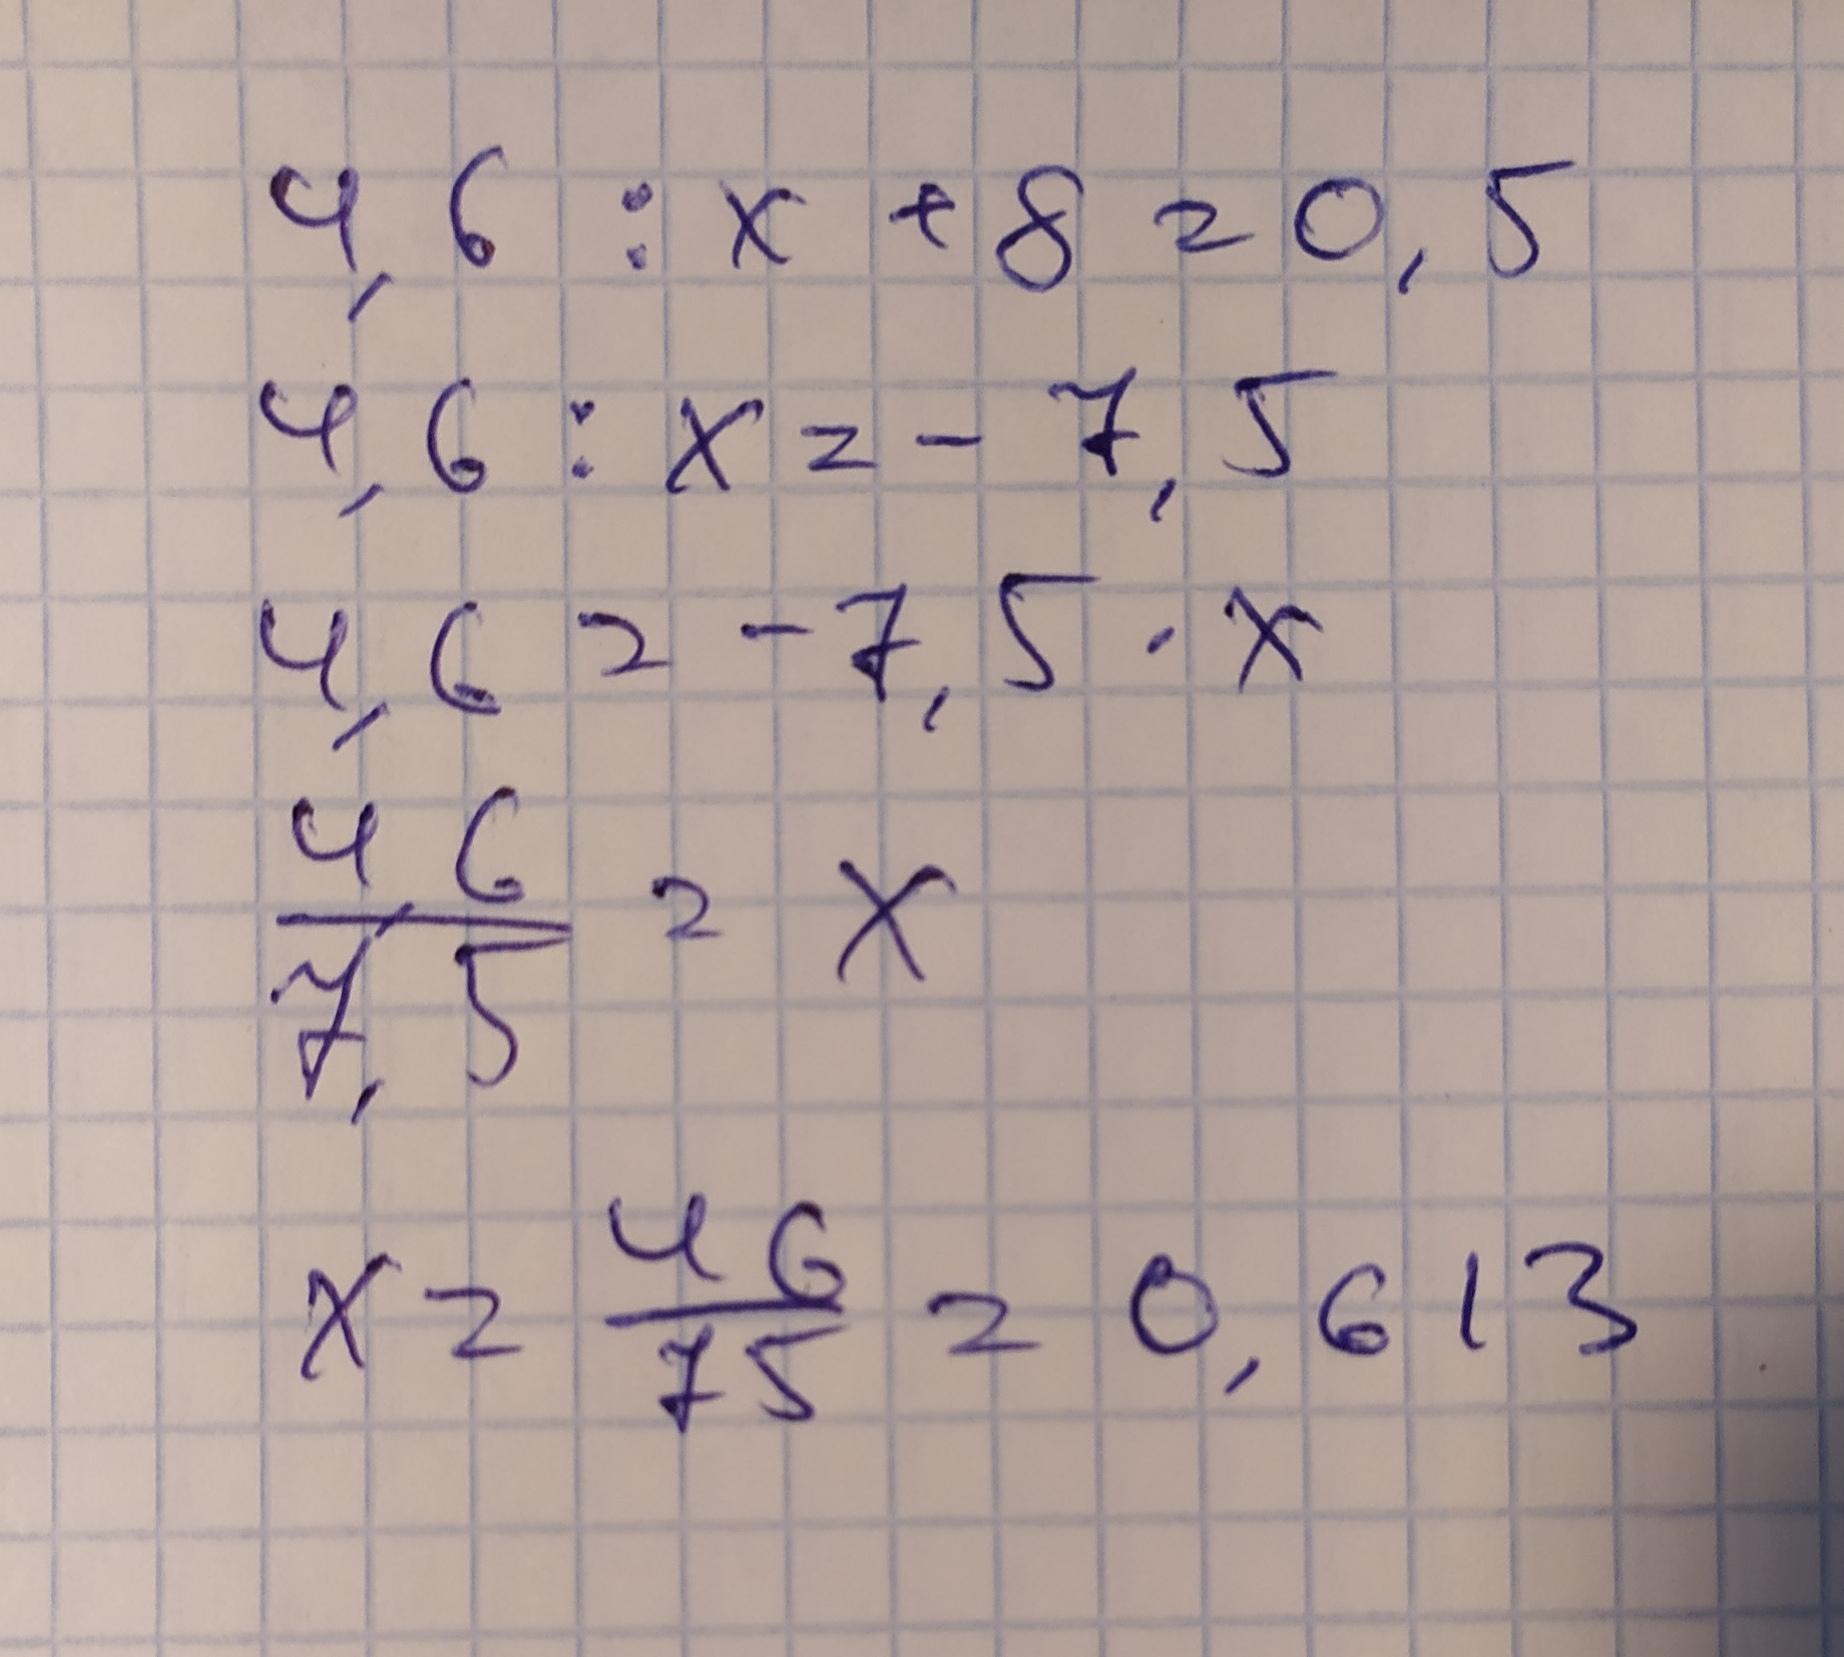 4,6 : x + 8 = 0,5
4,6 : x = - 7,5
4,6 = - 7,5 · x
4,6/7,5 = x
x = 46/75 = 0,613